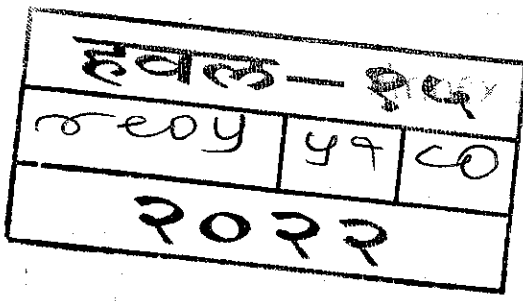 हवल – १५
५१ ८०
२०२२